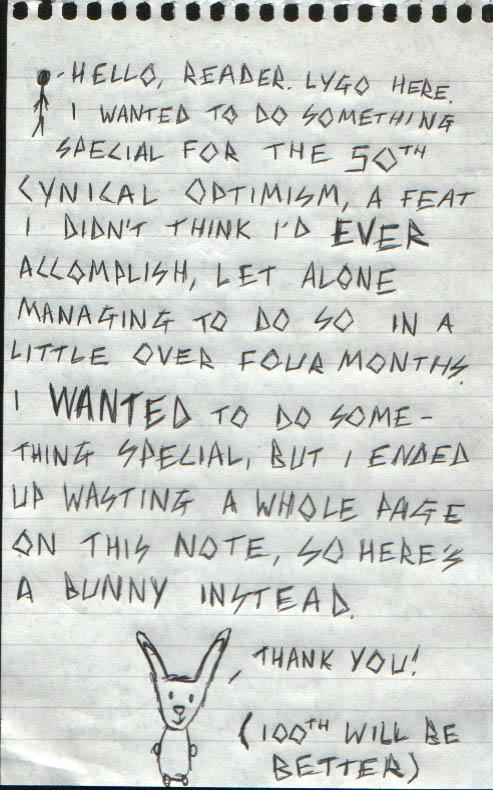 HELLO, READER. LYGO HERE.
I WANTED TO DO SOMETHING
SPECIAL FOR THE 50TH
CYNICAL OPTIMISM, A FEAT
I DIDN'T THINK I'D EVER
ACCOMPLISH, LET ALONE
MANAGING TO DO SO IN A
LITTLE OVER FOUR MONTHS.
I WANTED TO DO SOME-
THING SPECIAL, BUT I ENDED
UP WASTING A WHOLE PAGE
ON THIS NOTE, SO HERE'S
A BUNNY INSTEAD.
THANK YOU!
(100TH WILL BE
BETTER)